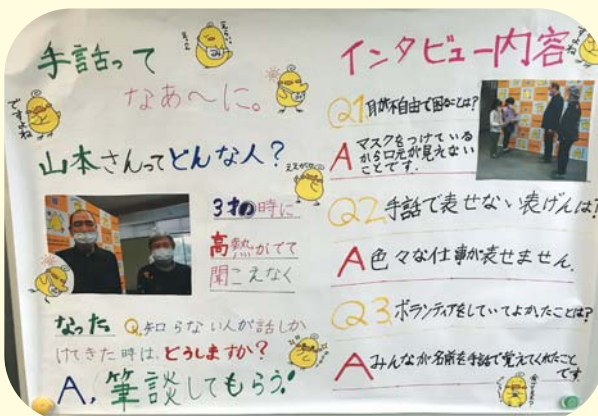 手話って
なあ~に。
ですよね
山本さんってどんな人?
3才の時に
高熱がでて
聞こえなく
なった
Q.知らない人が話しか
けてきた時は、どうしますか?
A,筆談してもらう!
インタビュー内容
Q1耳が不自由で困ることは?
Aマスクをつけている
から口元が見えない
ことです.
Q2手話で表せない表げんは?
A色々な仕事が表せません.
Q3ボランティアをしていてよかったことは?
Aみんなが名前を手話で覚えてくれたこと
です.